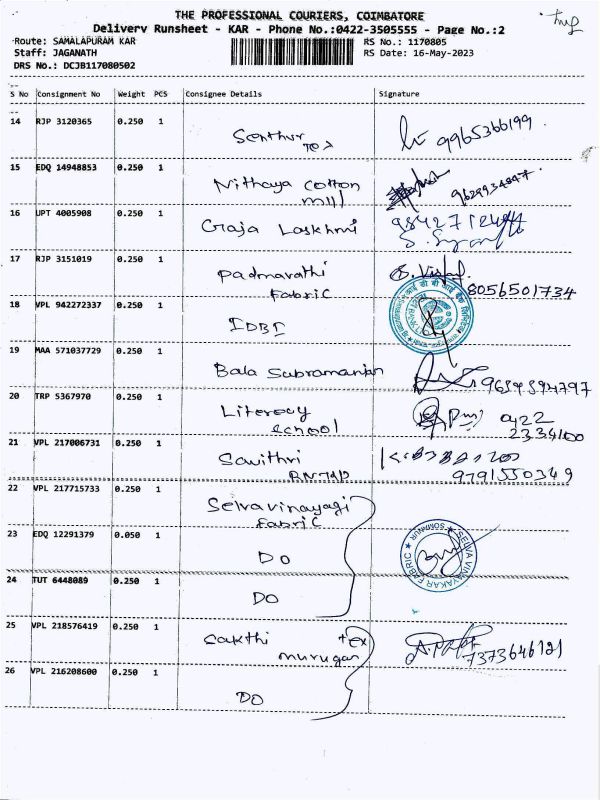 THE PROFESSIONAL COURIERS, COIMBATORE
Delivery Runsheet - KAR - Phone No.:0422-3505555 - Page No.:2
Route: SAMALAPURAM KAR RS No.: 1170805
Staff: JAGANATH RS Date: 16-May-2023
DRS No.: DCJB117080502
S No Consignment No Weight PCS Consignee Details Signature
14 RJP 3120365 0.250 1 Senthur Tex 9965366199
15 EDQ 14948853 0.250 1 Nithaya Cotton
mill
16 UPT 4005908 0.250 1 Gaja Laskhmi
17 RJP 3151019 0.250 1 Padmavathi
Fabric 8056501734
18 VPL 942272337 0.250 1 IDBI
19 MAA 571037729 0.250 1 Bala Subramanian
20 TRP 5367970 0.250 1 Literacy
School 0422
2334100
21 VPL 217006731 0.250 1 Savithri
9791550349
22 VPL 217715733 0.250 1 Selvavinayagi
Fabric
23 EDQ 12291379 0.050 1 DO
SELVA VINAYAKAR FABRIC ★ SOMANUR ★
24 TUT 6448089 0.250 1 DO
25 VPL 218576419 0.250 1 Sakthi
murugan Tex 7373646121
26 VPL 216208600 0.250 1 DO